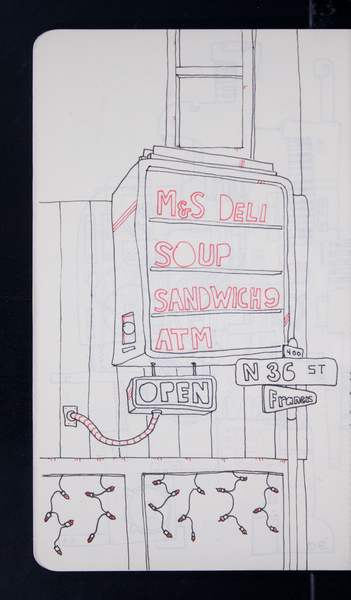 M&S DELI
SOUP
SANDWICH
ATM
400
OPEN
N 36 ST
Francis